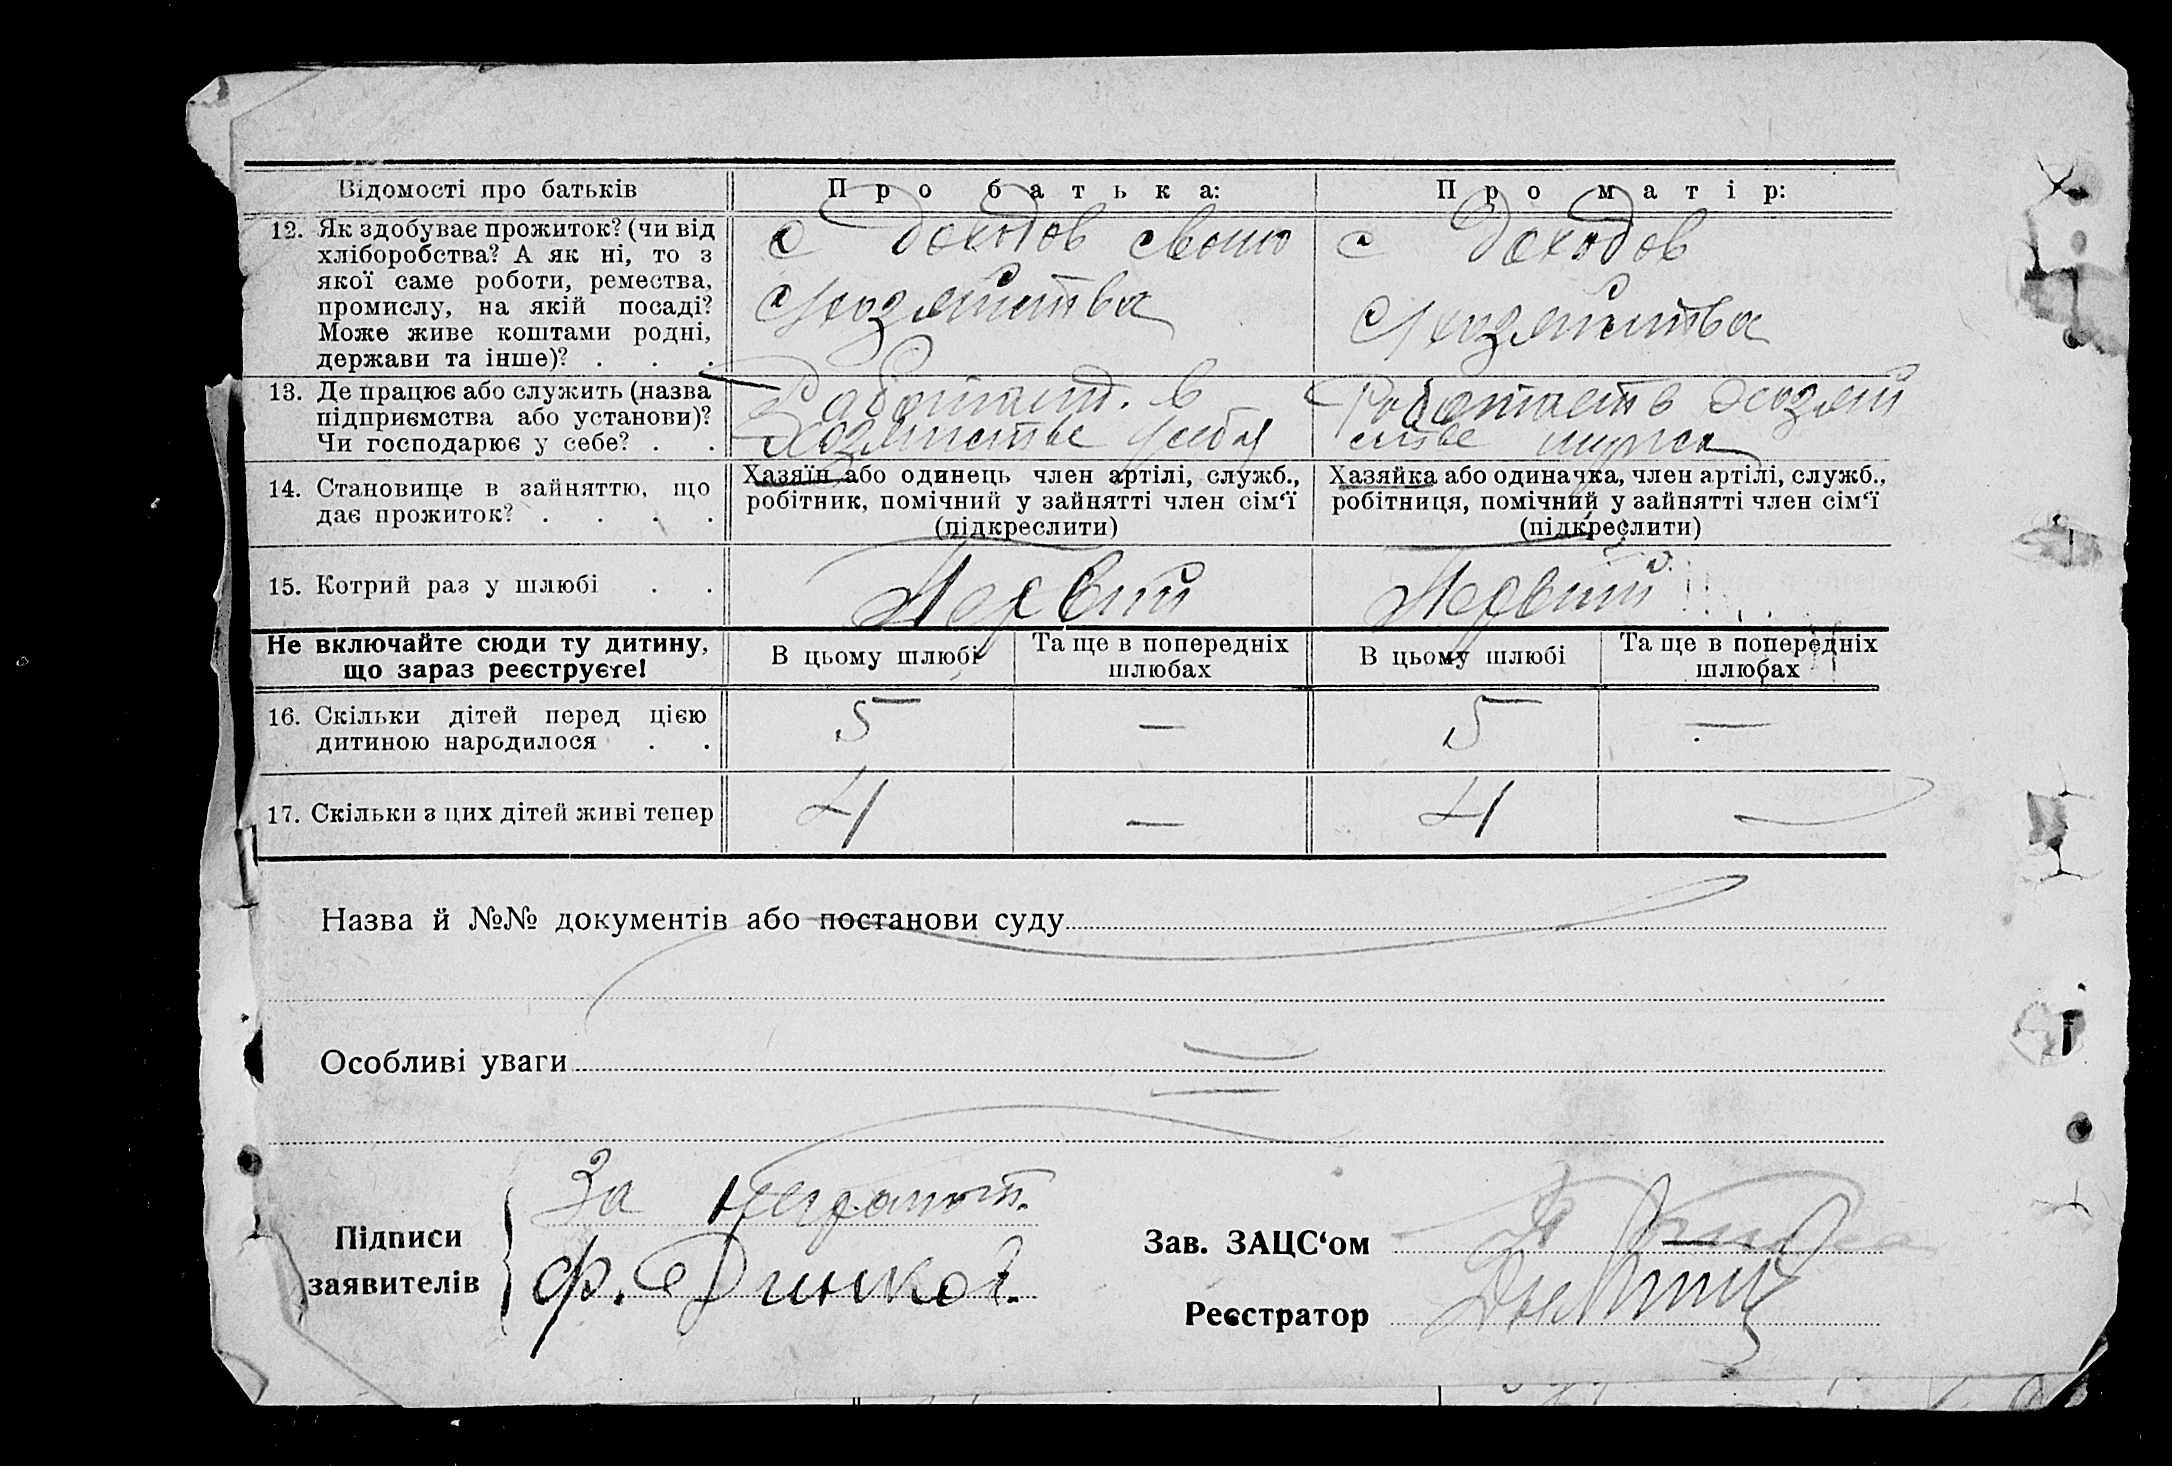 Відомості про батьків
Про батька:
Про матір:
12. Як здобуває прожиток? (чи від
хліборобства? А як ні, то з
якої саме роботи, ремества,
промислу, на якій посаді?
Може живе коштами родні,
держави та інше)? . . .
с доходов свого
хозяйства
с доходов
хозяйства
13. Де працює або служить (назва
підприємства або установи)?
Чи господарює у себе? . .
Работает в
хозяйстве у себя
Работает в хозяй
стве мужа
14. Становище в зайняттю, що
дає прожиток? . . . .
Хазяїн або одинець член артілі, служб.,
робітник, помічний у зайнятті член сім‘ї
(підкреслити)
Хазяйка або одиначка, член артілі, служб.,
робітниця, помічний у зайнятті член сім‘ї
(підкреслити)
15. Котрий раз у шлюбі . .
Первий
Первий
Не включайте сюди ту дитину,
що зараз реєструєте!
В цьому шлюбі
Та ще в попередніх
шлюбах
В цьому шлюбі
Та ще в попередніх
шлюбах
16. Скільки дітей перед цією
дитиною народилося . .
5 — 5 —
17. Скільки з цих дітей живі тепер
4 — 4 —
Назва й №№ документів або постанови суду
Особливі уваги
Підписи
заявителів
За неграмот.
Ф. Динков.
Зав. ЗАЦС‘ом
Реєстратор